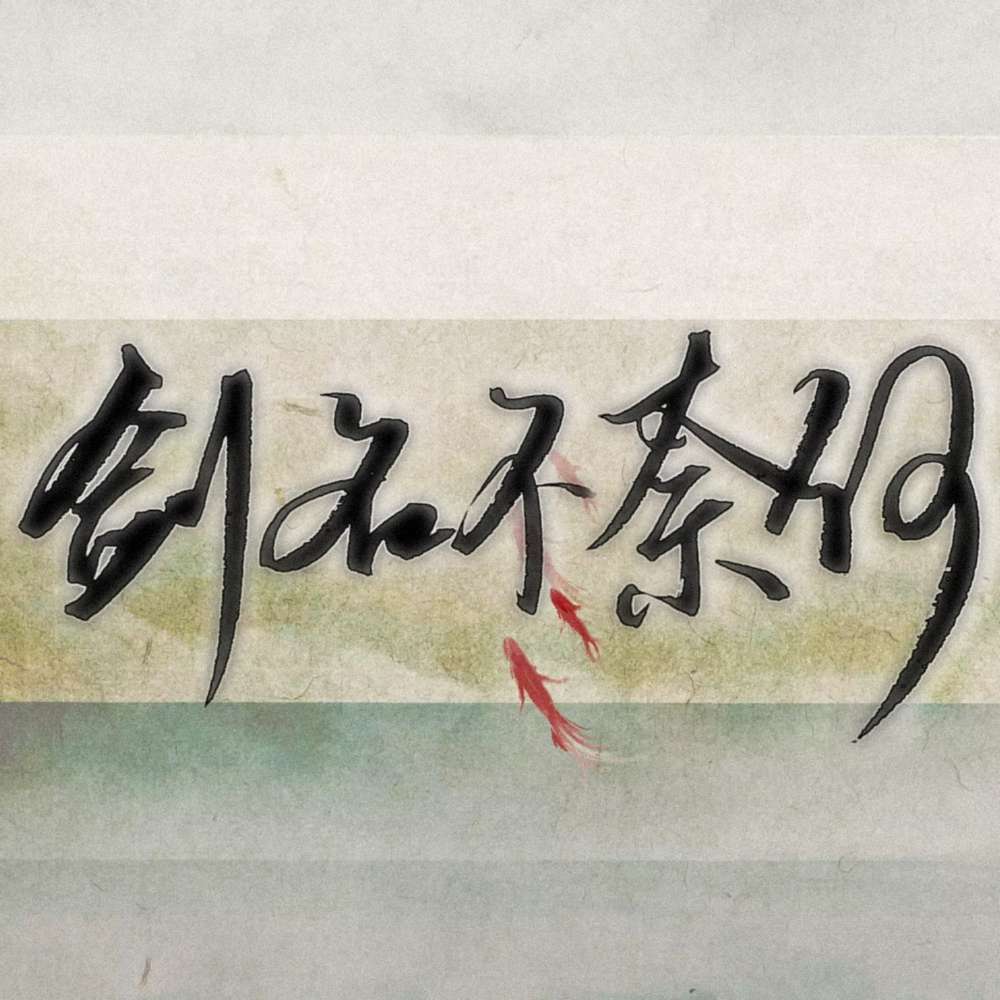 剑名不奈何